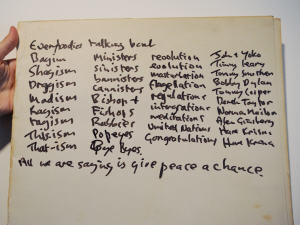 Everybodies talking bout
Bagism Ministers revolution John & Yoko
Shagism sinisters evolution Timmy Leary
Draggism bannisters masturbation Tommy Smothers
Madism Cannisters flagellation Bobby Dylan
Ragism Bishop & regulations Tommy Cooper
Tagism Fishops integrations Derek Taylor
Thisism Rabbis meditations Norman Mailer
That-ism Popeyes United Nations Alan Ginsberg
Bye Byes Congratulations Hare Krishna
Hare Krishna
All we are saying is give peace a chance.